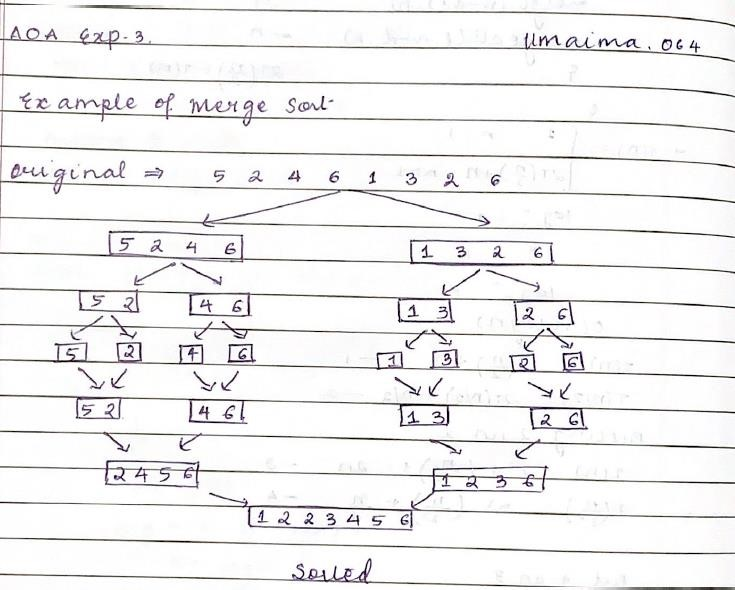 AOA Exp-3. Umaima. 064
Example of Merge Sort
original ⇒ 5 2 4 6 1 3 2 6
5 2 4 6 1 3 2 6
5 2 4 6 1 3 2 6
5 2 4 6 1 3 2 6
5 2 4 6 1 3 2 6
2 4 5 6 1 2 3 6
1 2 2 3 4 5 6
Sorted